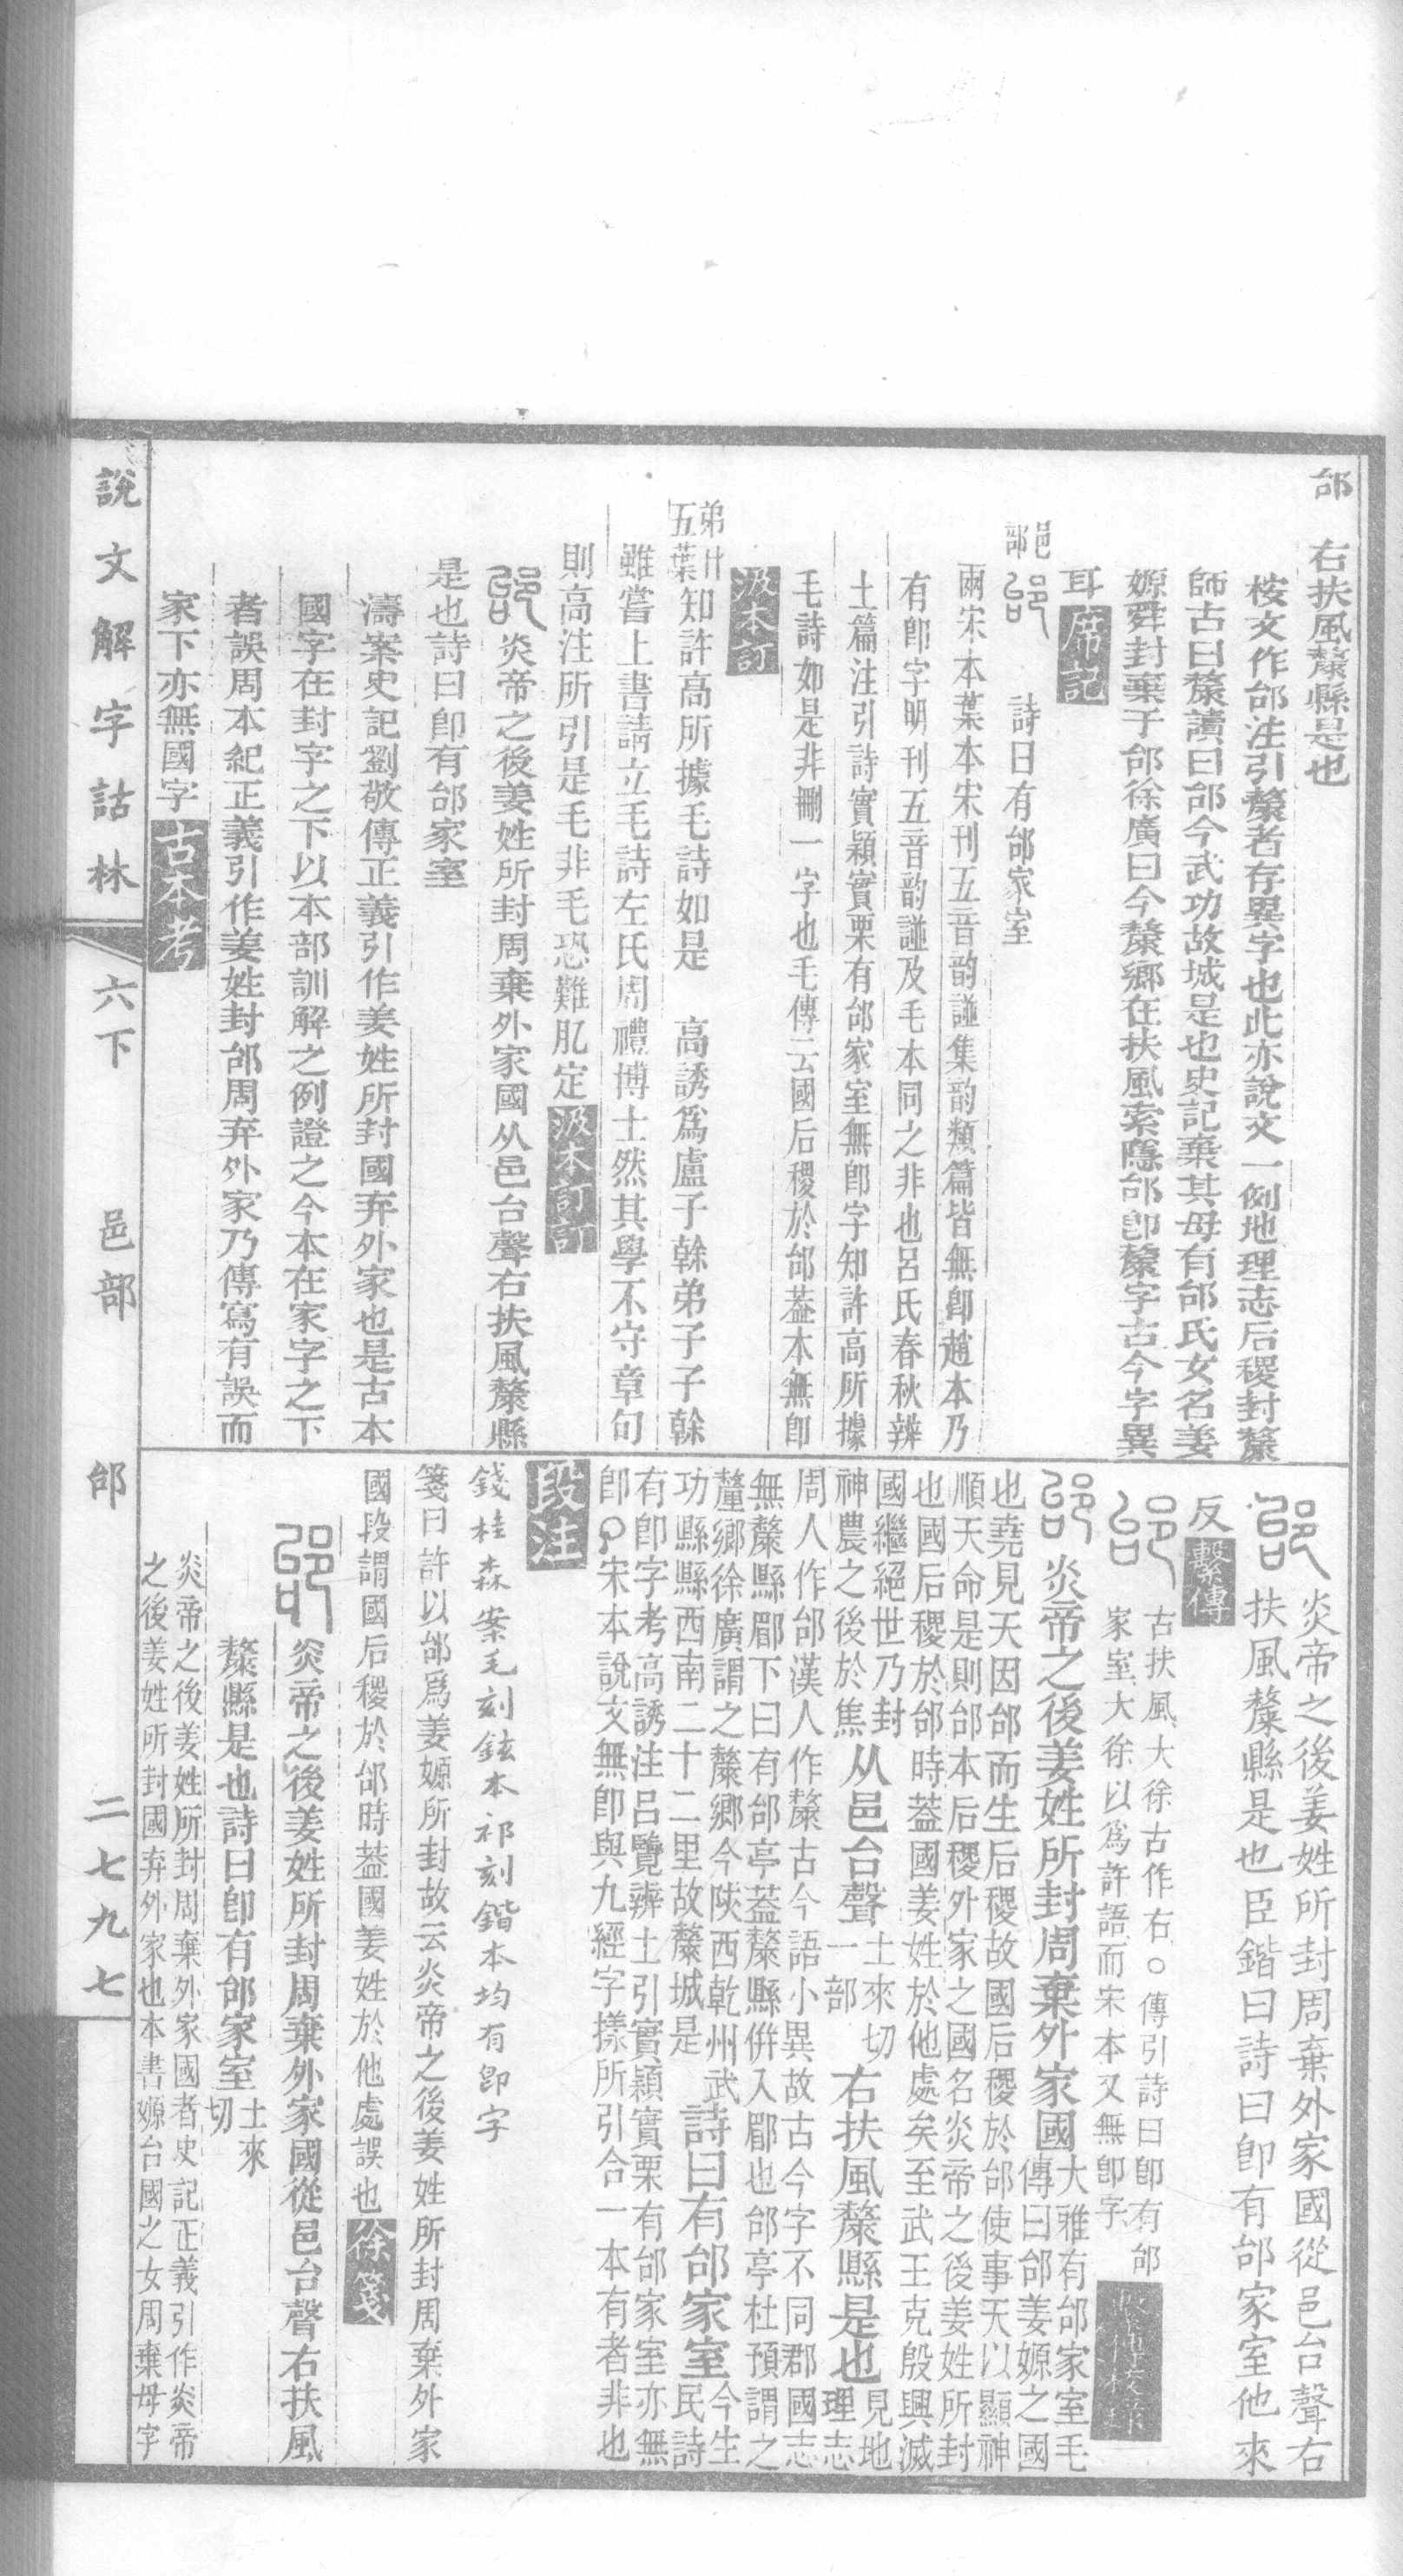 邰
右扶風斄縣是也
桉文作邰注引斄者存異字也此亦說文一例地理志后稷封斄
師古曰斄讀曰邰今武功故城是也史記棄其母有邰氏女名姜
嫄舜封棄于邰徐廣曰今斄鄉在扶風索隱邰卽斄字古今字異
耳 席記
邑部 詩曰有邰家室
兩宋本葉本宋刊五音韵譜集韵類篇皆無卽趙本乃
有卽字明刊五音韵譜及毛本同之非也呂氏春秋辨
土篇注引詩實穎實栗有邰家室無卽字知許高所據
毛詩如是非刪一字也毛傳云國后稷於邰葢本無卽
汲本訂
弟廿五葉知許高所據毛詩如是 高誘爲盧子榦弟子子榦
雖嘗上書請立毛詩左氏周禮博士然其學不守章句
則高注所引是毛非毛恐難肊定 汲本訂訂
炎帝之後姜姓所封周棄外家國从邑台聲右扶風斄縣
是也詩曰卽有邰家室
濤案史記劉敬傳正義引作姜姓所封國弃外家也是古本
國字在封字之下以本部訓解之例證之今本在家字之下
者誤周本紀正義引作姜姓封邰周弃外家乃傳寫有誤而
家下亦無國字 古本考
炎帝之後姜姓所封周棄外家國從邑台聲右
扶風斄縣是也臣鍇曰詩曰卽有邰家室他來
反 繫傳
古扶風大徐古作右○傳引詩曰卽有邰
家室大徐以爲許語而宋本又無卽字
炎帝之後姜姓所封周棄外家國 大雅有邰家室毛
傳曰邰姜嫄之國
也堯見天因邰而生后稷故國后稷於邰使事天以顯神
順天命是則邰本后稷外家之國名炎帝之後姜姓所封
也國后稷於邰時葢國姜姓於他處矣至武王克殷興滅
國繼絕世乃封
神農之後於焦 从邑台聲 土來切
一部 右扶風斄縣是也 見地
理志
周人作邰漢人作斄古今語小異故古今字不同郡國志
無斄縣郿下曰有邰亭葢斄縣倂入郿也邰亭杜預謂之
釐鄉徐廣謂之斄鄉今陝西乾州武
功縣縣西南二十二里故斄城是 詩曰有邰家室 今生
民詩
有卽字考高誘注呂覽辨土引實穎實栗有邰家室亦無
卽○宋本說文無卽與九經字㨾所引合一本有者非也
段注
錢桂森案毛刻鉉本祁刻鍇本均有卽字
箋曰許以邰爲姜嫄所封故云炎帝之後姜姓所封周棄外家
國段謂國后稷於邰時葢國姜姓於他處誤也 徐箋
炎帝之後姜姓所封周棄外家國從邑台聲右扶風
斄縣是也詩曰卽有邰家室 土來
切
炎帝之後姜姓所封周棄外家國者史記正義引作炎帝
之後姜姓所封國弃外家也本書嫄台國之女周棄母字
說文解字詁林 六下 邑部 邰 二七九七